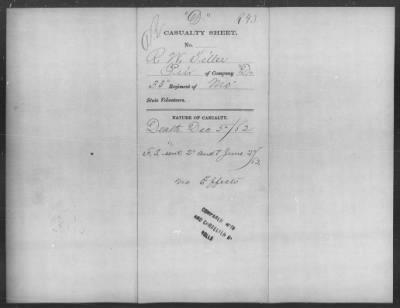 "D"
CASUALTY SHEET.
No.
R. W.
of Company D.
33" Regiment of "Mo"
State Volunteers.
NATURE OF CASUALTY.
Death Dec 5"/62
F. S. sent 2d Audt June 27/63.
no Effects
COMPARED WITH
AND CANCELLED BY
ROLLS